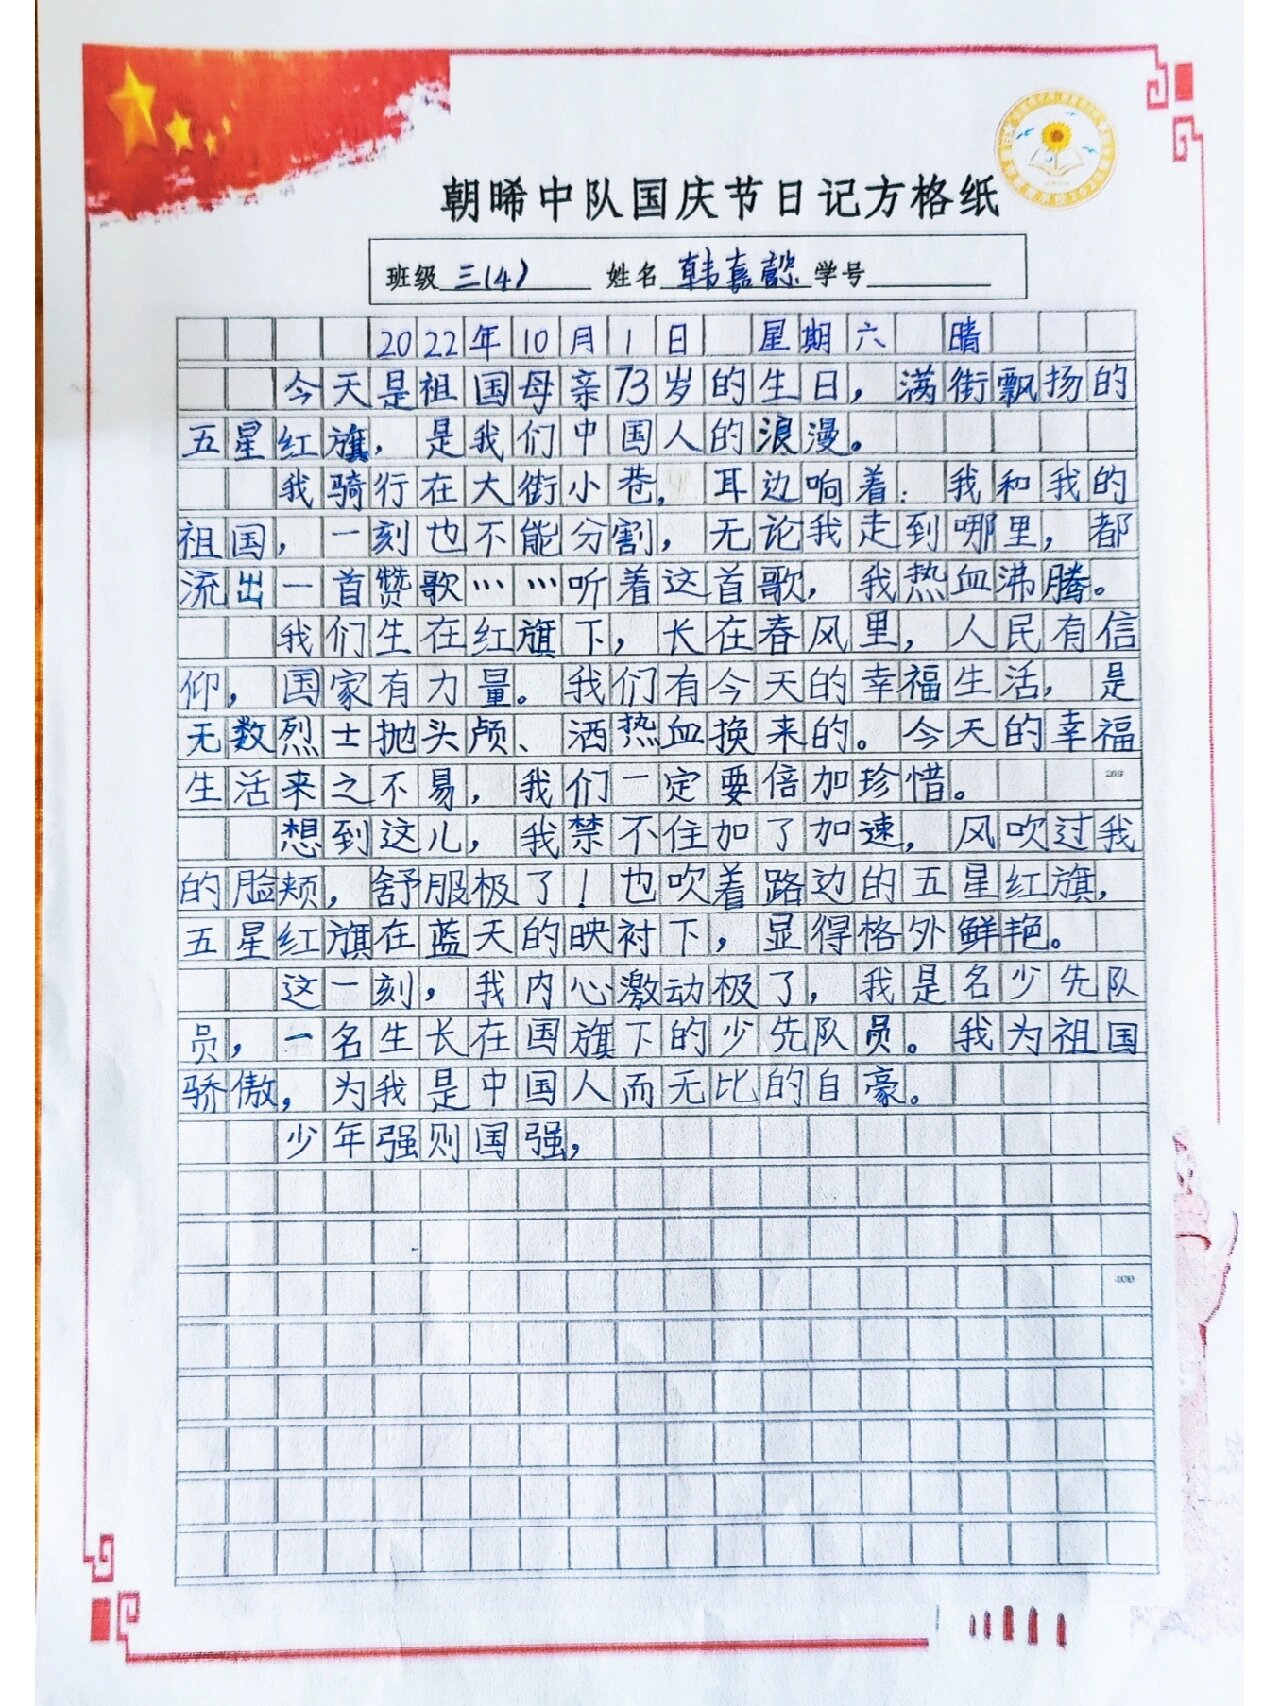 朝晞中队国庆节日记方格纸
班级 三(4) 姓名 韩嘉懿 学号
2022年10月1日 星期六 晴
今天是祖国母亲73岁的生日，满街飘扬的
五星红旗，是我们中国人的浪漫。
我骑行在大街小巷，耳边响着：我和我的
祖国，一刻也不能分割，无论我走到哪里，都
流出一首赞歌……听着这首歌，我热血沸腾。
我们生在红旗下，长在春风里，人民有信
仰，国家有力量。我们有今天的幸福生活，是
无数烈士抛头颅、洒热血换来的。今天的幸福
生活来之不易，我们一定要倍加珍惜。
200
想到这儿，我禁不住加了加速，风吹过我
的脸颊，舒服极了！也吹着路边的五星红旗，
五星红旗在蓝天的映衬下，显得格外鲜艳。
这一刻，我内心激动极了，我是名少先队
员，一名生长在国旗下的少先队员。我为祖国
骄傲，为我是中国人而无比的自豪。
少年强则国强，
400